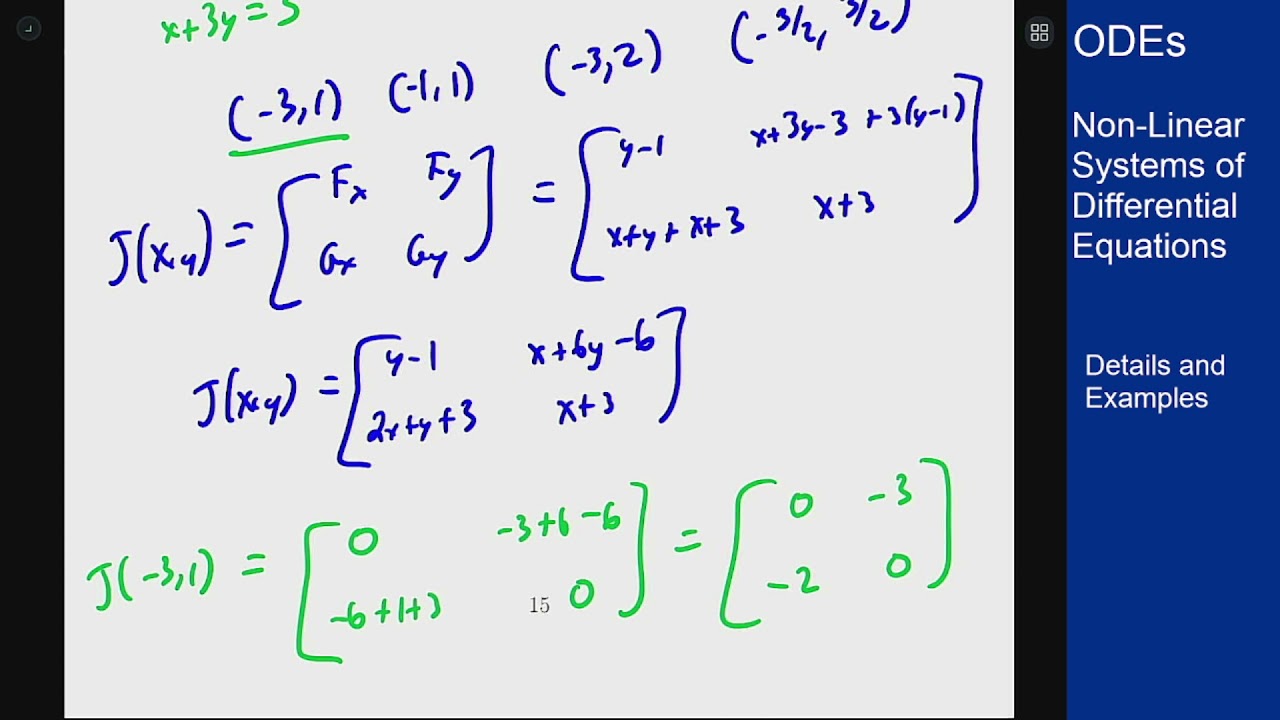 x+3y=3
(-3,1) (-1,1) (-3,2) (-3/2, 3/2)
J(x,y) = [ Fx Fy ] = [ y-1 x+3y-3 +3(y-1) ]
[ Gx Gy ] [ x+y+x+3 x+3 ]
J(x,y) = [ y-1 x+6y-6 ]
[ 2x+y+3 x+3 ]
J(-3,1) = [ 0 -3+6-6 ] = [ 0 -3 ]
[ -6+1+3 0 ] [ -2 0 ]
15
ODEs
Non-Linear
Systems of
Differential
Equations
Details and
Examples